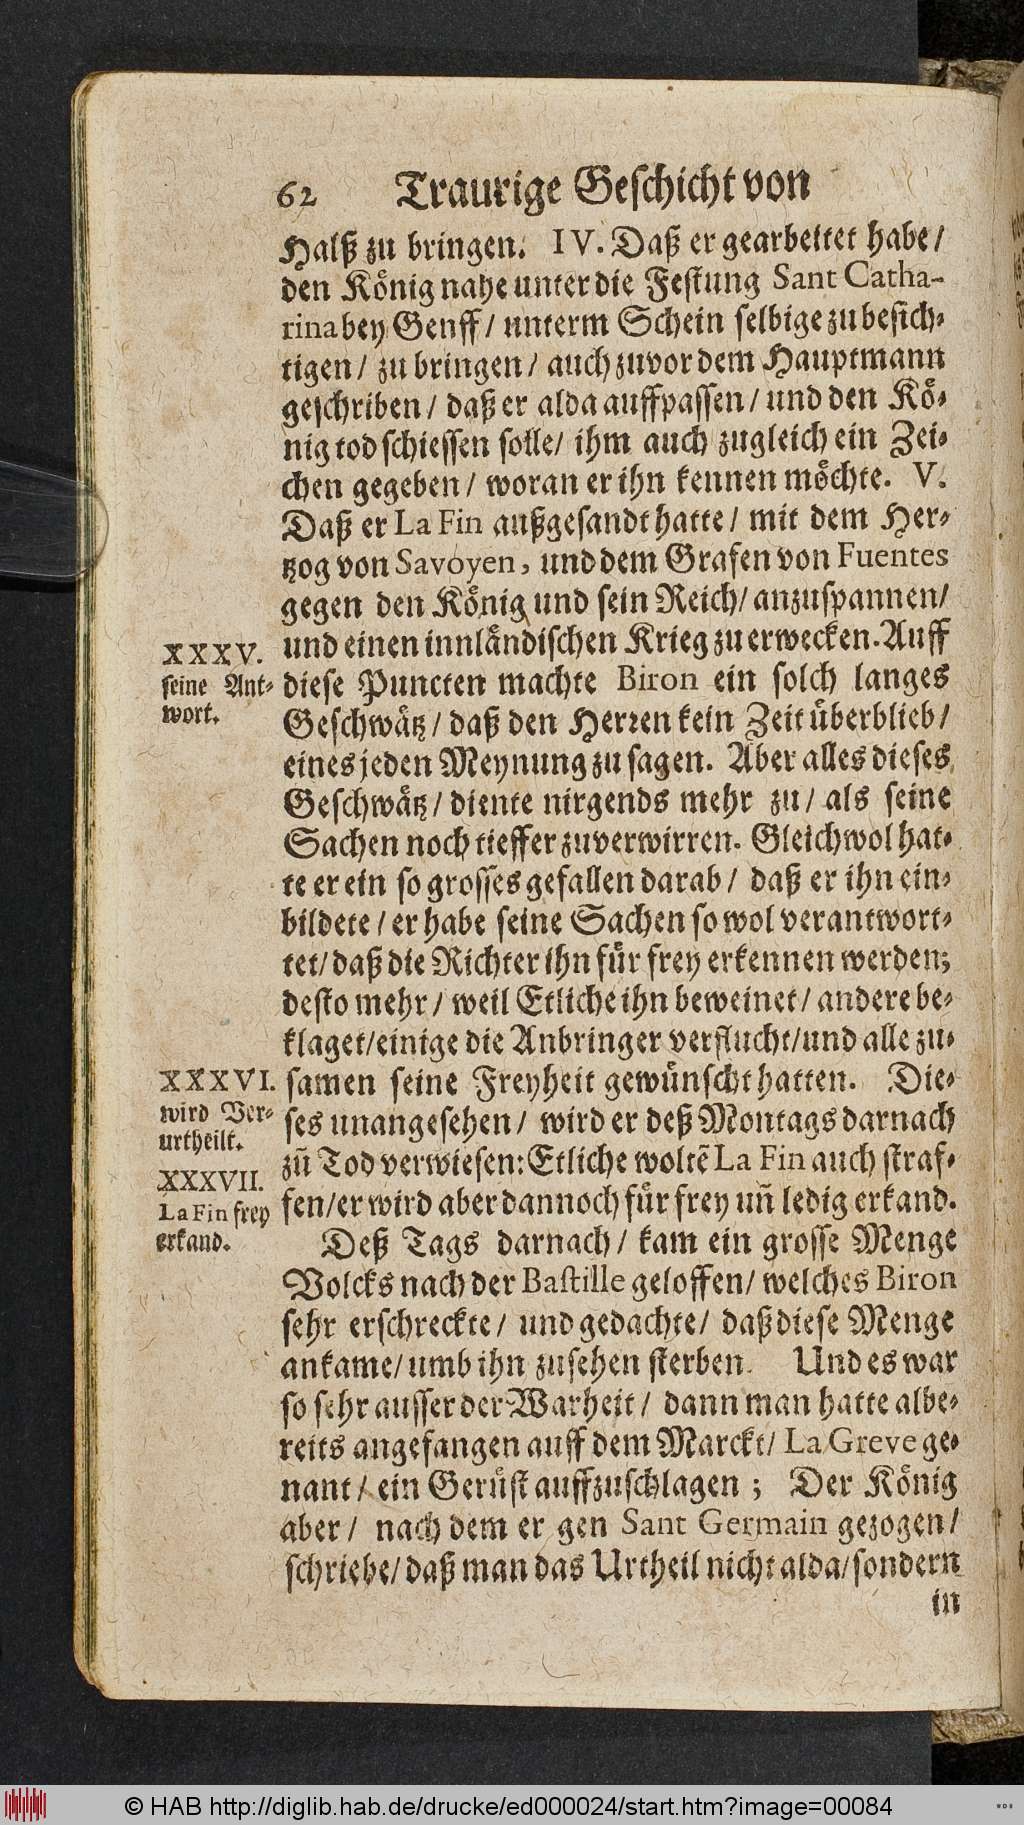 62 Traurige Geschicht von
Halß zu bringen. IV. Daß er gearbeitet habe/
den König nahe unter die Festung Sant Catha-
rina bey Genff/ unterm Schein selbige zu besich-
tigen/ zu bringen/ auch zuvor dem Hauptmann
geschriben/ daß er alda auffpassen/ und den Kö-
nig tod schiessen solle/ ihm auch zugleich ein Zei-
chen gegeben/ woran er ihn kennen möchte. V.
Daß er La Fin außgesandt hatte/ mit dem Her-
tzog von Savoyen, und dem Grafen von Fuentes
gegen den König und sein Reich/ anzuspannen/
und einen innländischen Krieg zu erwecken. Auff
XXXV.
seine Ant-
wort.
diese Puncten machte Biron ein solch langes
Geschwätz/ daß den Herren kein Zeit überblieb/
eines jeden Meynung zu sagen. Aber alles dieses
Geschwätz/ diente nirgends mehr zu/ als seine
Sachen noch tieffer zuverwirren. Gleichwol hat-
te er ein so grosses gefallen darab/ daß er ihn ein-
bildete/ er habe seine Sachen so wol verantwort-
tet/ daß die Richter ihn für frey erkennen werden;
desto mehr/ weil Etliche ihn beweinet/ andere be-
klaget/ einige die Anbringer verflucht/ und alle zu-
XXXVI.
wird Ver-
urtheilt.
samen seine Freyheit gewünscht hatten. Die-
ses unangesehen/ wird er deß Montags darnach
zū Tod verwiesen: Etliche woltē La Fin auch straf-
XXXVII.
La Fin frey
erkand.
fen/ er wird aber dannoch für frey uñ ledig erkand.
Deß Tags darnach/ kam ein grosse Menge
Volcks nach der Bastille geloffen/ welches Biron
sehr erschreckte/ und gedachte/ daß diese Menge
ankame/ umb ihn zusehen sterben. Und es war
so sehr ausser der Warheit/ dann man hatte albe-
reits angefangen auff dem Marckt/ La Greve ge-
nant/ ein Gerüst auffzuschlagen; Der König
aber/ nach dem er gen Sant Germain gezogen/
schriebe/ daß man das Urtheil nicht alda/ sondern
in
© HAB http://diglib.hab.de/drucke/ed000024/start.htm?image=00084